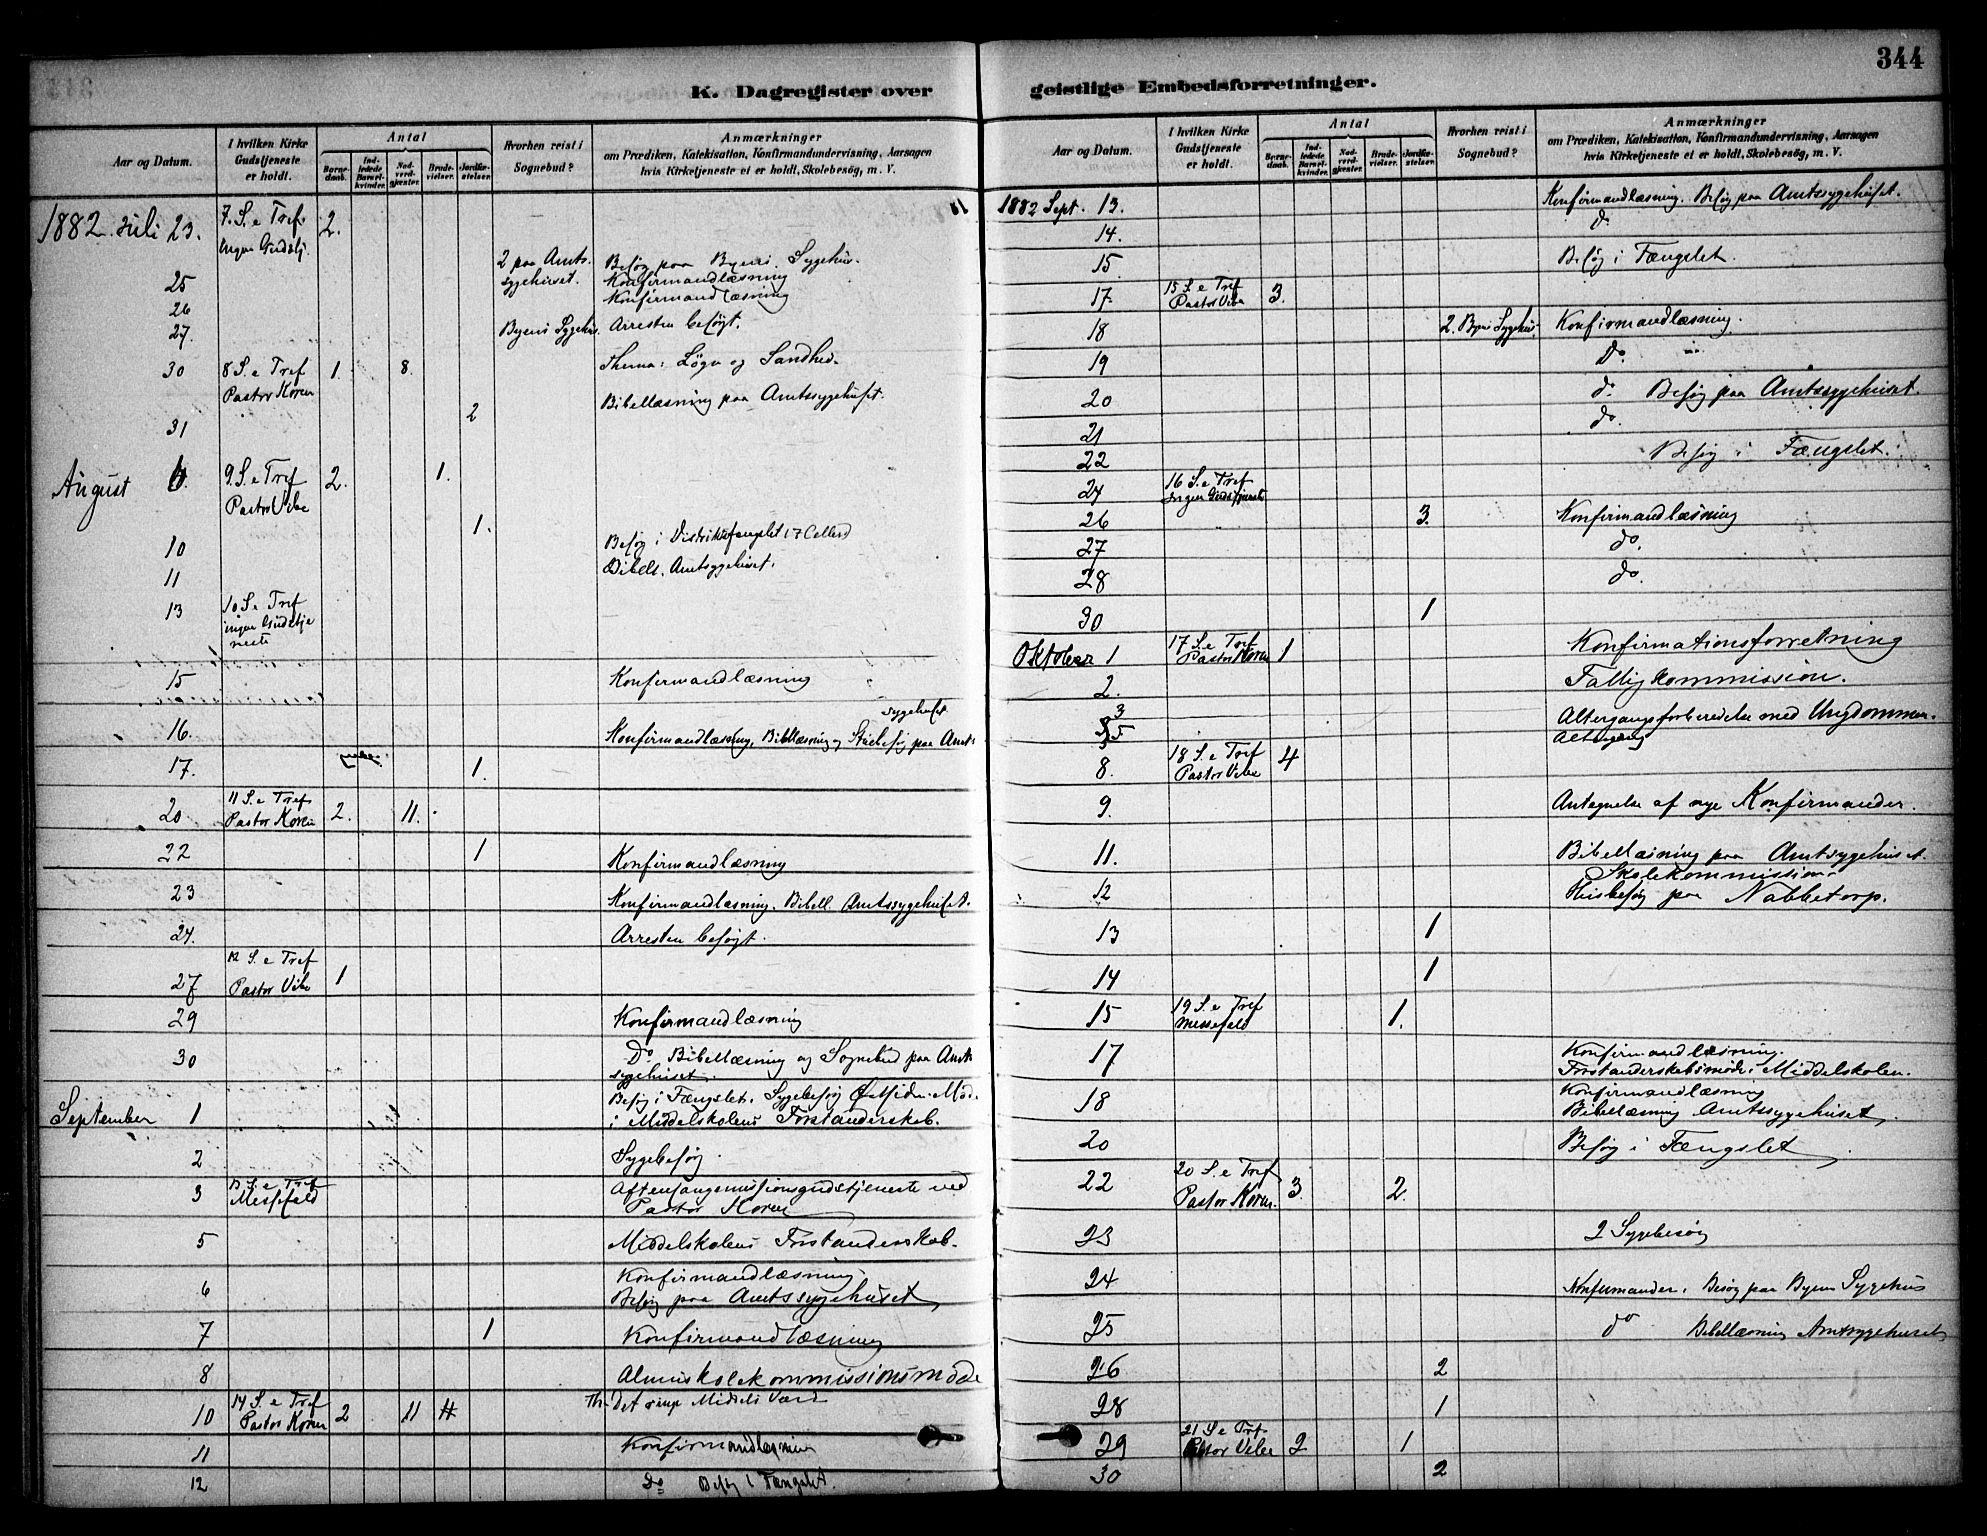 344
K. Dagregister over
geistlige Embedsforretninger.
Aar og Datum.
I hvilken Kirke
Gudstjeneste
er holdt.
Antal
Barne-
daab.
Ind-
ledede
Barsel-
kvinder.
Nad-
verd-
gjester.
Brude-
vielser.
Jordfæ-
stelser.
Hvorhen reist i
Sognebud?
Anmærkninger
om Prædiken, Katekisation, Konfirmandundervisning, Aarsagen
hvis Kirketjeneste ei er holdt, Skolebesøg, m. V.
1882 Juli 23. 7. S. e Tref. 2.
Ingen Gudstj.
2 paa Amts- Besøg paa Byens Sygehus.
25 sygehuset. Konfirmandlæsning
26 Konfirmandlæsning
27. Byens Sygehus. Arresten besøgt.
30 8 S. e Tref 1. 8. Thema: Løgn og Sandhed.
Pastor Koren
2 Bibellæsning paa Amtssygehuset.
31
August 6. 9. S. e Tref 2. 1.
Pastor Vibe
1.
10 Besøg i Distriktsfængslet (7 Celler)
11 Bibell. Amtsygehuset.
13 10 S. e Tref
ingen Gudstje
neste
15 Konfirmandlæsning
sygehuset
16. Konfirmandlæsning, Bibellæsning og paa Amts-
17. 1.
20 11 S. e Tref. 2. 11.
Pastor Koren
22 1 Konfirmandlæsning
23 Konfirmandlæsning. Bibell. Amtssygehuset.
24. Arresten besøgt.
12 S. e Tref
27 Pastor Vibe 1
29 Konfirmandlæsning
30 Do Bibellæsning og Sognebud paa Amts
sygehuset.
Besøg i Fængslet. Sygebesøg Østsiden. Mød.
September 1 i Middelskolens Forstanderskab.
2 Sygebesøg.
3 13 S. e Tref Aftensangsmissionsgudstjeneste ved
Messefald Pastor Koren
5 Middelskolens Forstanderskab.
6 Konfirmandlæsning.
Besøg paa Amtssygehuset
7 1 Konfirmandlæsning
8 Almuskolekommissionsmøde
10 14 S. e Tref 2 11 Th. Det Middels Værd
Pastor Koren
11 Konfirmandlæsning
12 Do Besøg i Fængslet.
Aar og Datum.
I hvilken Kirke
Gudstjeneste
er holdt.
Antal
Barne-
daab.
Ind-
ledede
Barsel-
kvinder.
Nad-
verd-
gjester.
Brude-
vielser.
Jordfæ-
stelser.
Hvorhen reist i
Sognebud?
Anmærkninger
om Prædiken, Katekisation, Konfirmandundervisning, Aarsagen
hvis Kirketjeneste ei er holdt, Skolebesøg, m. V.
1882 Sept. 13. Konfirmandlæsning. Besøg paa Amtssygehuset.
14. do
15. Besøg i Fængslet.
17. 15 S. e Tref 3.
Pastor Vibe
18 2. Byens Sygehus. Konfirmandlæsning.
19 Do.
20 do Besøg paa Amtssygehuset.
21 do.
22 Besøg i Fængslet.
24 16 S. e Tref
Ingen Gudstjeneste
26 3. Konfirmandlæsning
27 do.
28 do.
30 1
Oktober 1 17 S. e Tref 1 Konfirmationsforretning
Pastor Koren
2. Fattigkommission.
3 Altergangsforberedelse med Ungdommen.
5 Altergang
8. 18 S. e Tref 4
Pastor Vibe
9. Antegnelse af nye Konfirmander.
11. Bibellæsning paa Amtsygehuset.
Skolekommission.
12 Husbesøg paa Nabbetorp.
13 1
14 1
15 19 S. e Tref 1.
Messefald
17 Konfirmandlæsning.
Forstanderskabsmøde i Middelskolen.
18 Konfirmandlæsning
Bibellæsning Amtssygehuset.
20 Besøg i Fængslet
22 20 S. e Tref 3. 2.
Pastor Koren.
23 2 Sygebesøg
24 Konfirmander. Besøg paa Byens Sygehus
25 do Bibellæsning Amtsygehuset
26 2
28 1
29 21 S. e Tref. 2 1
Pastor Vibe
30 2